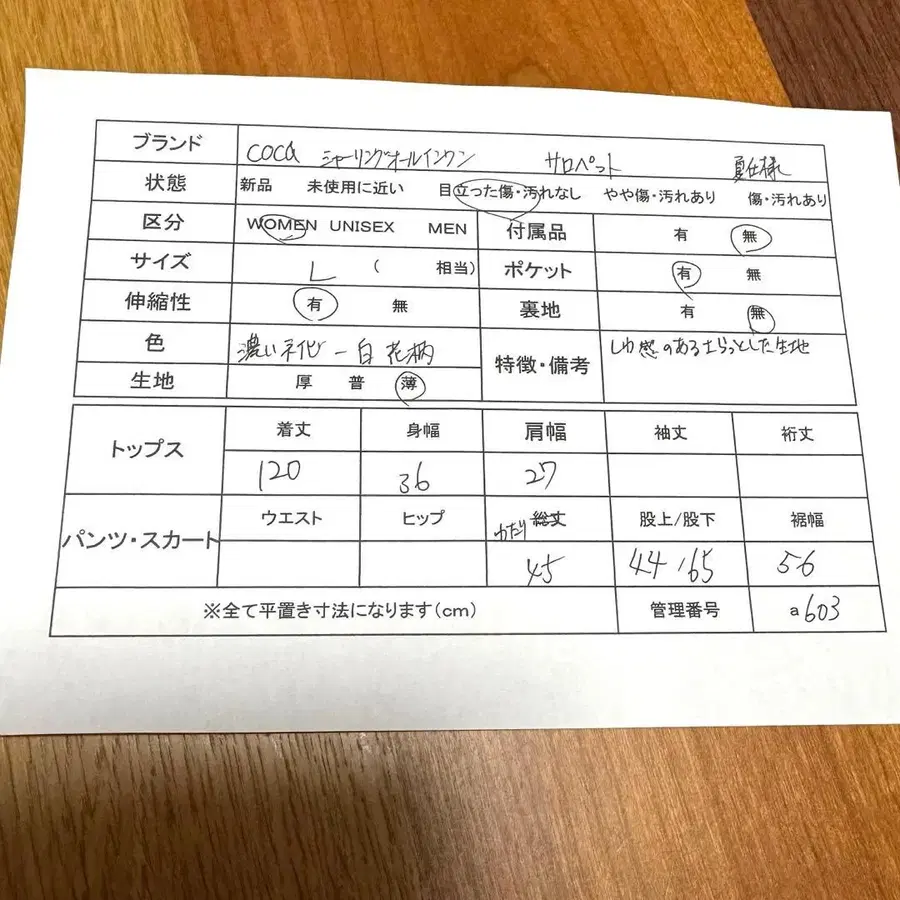 ブランド coca シャーリングオールインワン サロペット 夏仕様
状態 新品 未使用に近い 目立った傷・汚れなし やや傷・汚れあり 傷・汚れあり
区分 WOMEN UNISEX MEN 付属品 有 無
サイズ L ( 相当) ポケット 有 無
伸縮性 有 無 裏地 有 無
色 濃いネイビー白花柄 特徴・備考 しわ感のあるさらっとした生地
生地 厚 普 薄
トップス 着丈 身幅 肩幅 袖丈 裄丈
120 36 27
パンツ・スカート ウエスト ヒップ わたり 総丈 股上/股下 裾幅
45 44/65 56
※全て平置き寸法になります(cm) 管理番号 a603